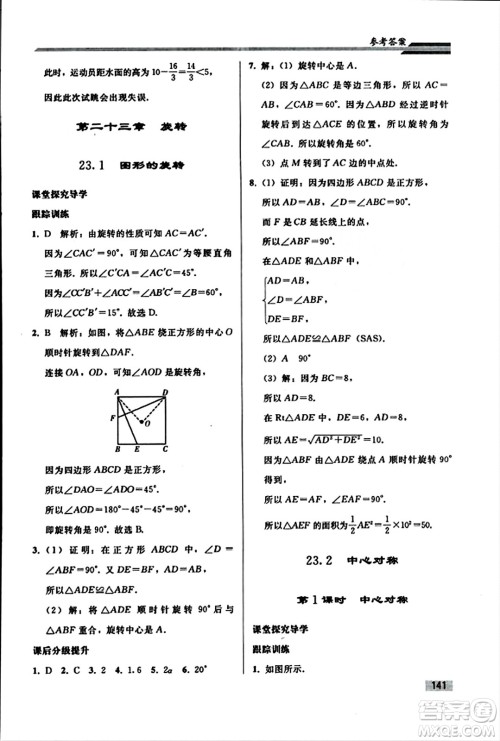 参考答案
此时，运动员距水面的高为10-16/3=14/3<5，
因此此次试跳会出现失误．
第二十三章 旋转
23.1 图形的旋转
课堂探究导学
跟踪训练
1. D 解析：由旋转的性质可知 AC=AC′．
因为∠CAC′=90°，可知△CAC′为等腰直角
三角形．所以∠CC′A=45°．
因为∠CC′B′+∠ACC′=∠AB′C′=60°，
所以∠CC′B′=15°．故选 D．
2. B 解析：如图，将△ABE 绕正方形的中心 O
顺时针旋转到△DAF．
连接 OA，OD，可知∠AOD 是旋转角，
A D
F O
B E C
因为四边形 ABCD 是正方形，
所以∠DAO=∠ADO=45°．
所以∠AOD=180°-45°-45°=90°，
即旋转角为 90°．故选 B．
3. (1) 证明：在正方形 ABCD 中，∠D=90°，
所以△ADE≌△ABF．
(2) 解：将△ADE 顺时针旋转后与△ABF
重合，旋转中心是 A，旋转角是 90°．
课后分级提升
1. D 2. C 3. C 4. 1.6 5. 2a 6. 90°
7. 解：(1) 旋转中心是 A．
(2) 因为△ABC 是等边三角形，
又△ABD 经过旋转后到达△ACE 的位置，所
以旋转角度为 60°．
(3) 点 M 转到了 AC 的中点处．
8. (1) 证明：因为四边形 ABCD 是正方形，
所以 AD=AB，∠D=∠ABC=90°．
而 F 是 CB 延长线上的点，
所以∠ABF=90°．
在△ADE 和△ABF 中，
AD=AB，
∠D=∠ABF，
DE=BF，
所以△ADE≌△ABF (SAS)．
(2) A 90°
(3) 解：因为 BC=8，
所以 AD=8．
在 Rt△ADE 中，DE=6，AD=8，
所以 AE=√(AD²+DE²)=10．
因为△ABF 可以由△ADE 绕点 A 顺时针旋转 90°
得到，
所以 AE=AF，∠EAF=90°．
所以△AEF 的面积=1/2AE²=1/2×10²=50．
23.2 中心对称
第 1 课时 中心对称
课堂探究导学
跟踪训练
1. 如图所示．
141